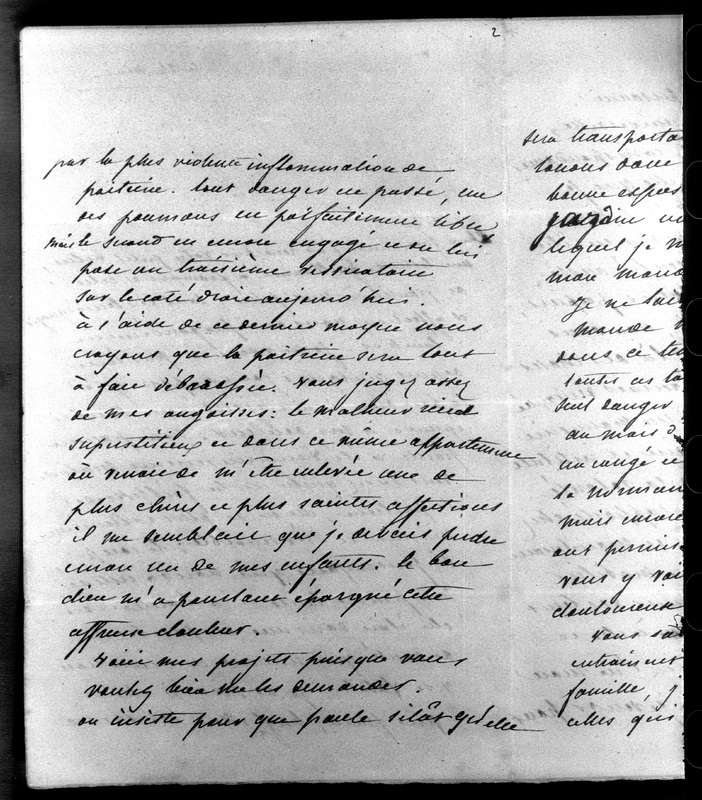 2
par la plus violente inflammation de
poitrine. tout danger est passé, un
des poumons est parfaitement libre
mais le second est encore engagé et on lui
pose un troisième vésicatoire
sur le coté droit aujourd'hui.
à l'aide de ce dernier moyen nous
croyons que la poitrine sera tout
à fait débarassée. Vous jugez assez
de mes angoisses: le malheur rend
superstitieux et dans ce même appartement
où venait de m'être enlevée une de
plus chères et plus saintes affections
il me semblait que je devais perdre
encore un de mes enfants. le bon
dieu m'a pourtant épargné cette
affreuse douleur.
Voici mes projets puisque vous
voulez bien me les demander.
on insiste pour que paule sitôt qu'elle
sera transporta
tenons donc
bonne espér
jardin
lequel je m
mon mana
Je ne
monde
dans ce te
toutes ces
seul danger
au mois d
un congé et
la norman
mais encore
ont permis
vous y voi
douloureuse
Vous sa
entrainent
famille, j
celles qui